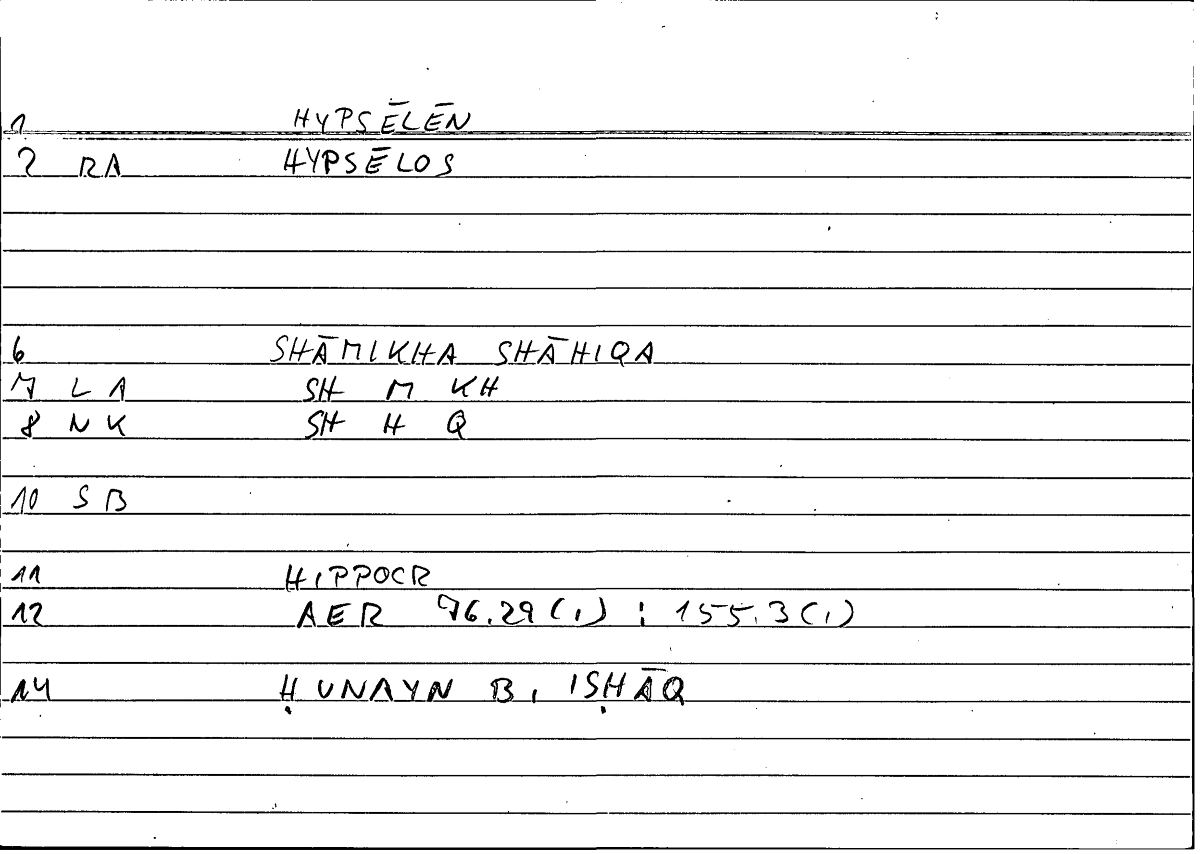 1 HYPSĒLĒN
2 RA HYPSĒLOS
6 SHĀMIKHA SHĀHIQA
7 LA SH M KH
8 NK SH H Q
10 SB
11 HIPPOCR
12 AER 76.29(,) : 155.3(,)
14 ḤUNAYN B, ISḤĀQ